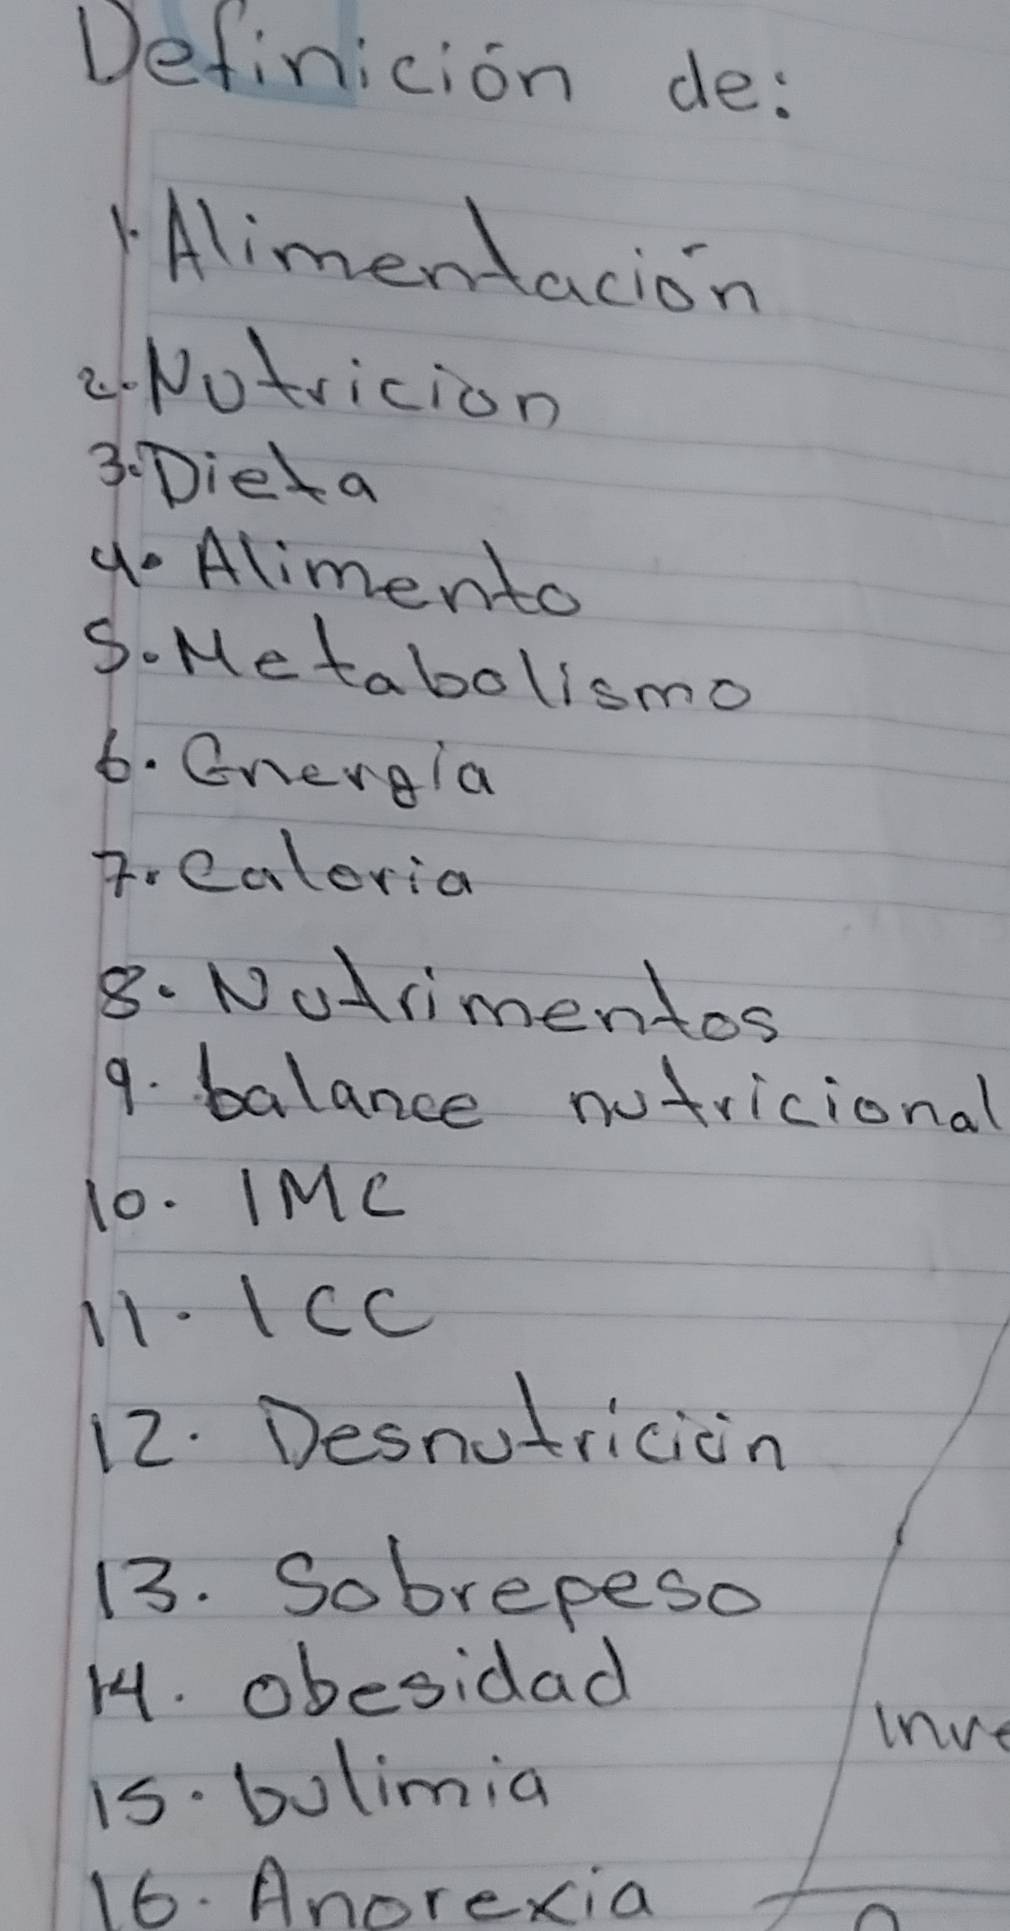 Definición de:
1. Alimentación
2. Nutricion
3. Dieta
4. Alimento
5. Metabolismo
6. Energía
7. Caloria
8. Nutrimentos
9. balance nutricional
10. IMC
11. ICC
12. Desnutrición
13. Sobrepeso
14. obesidad
15. bulimia
16. Anorexia